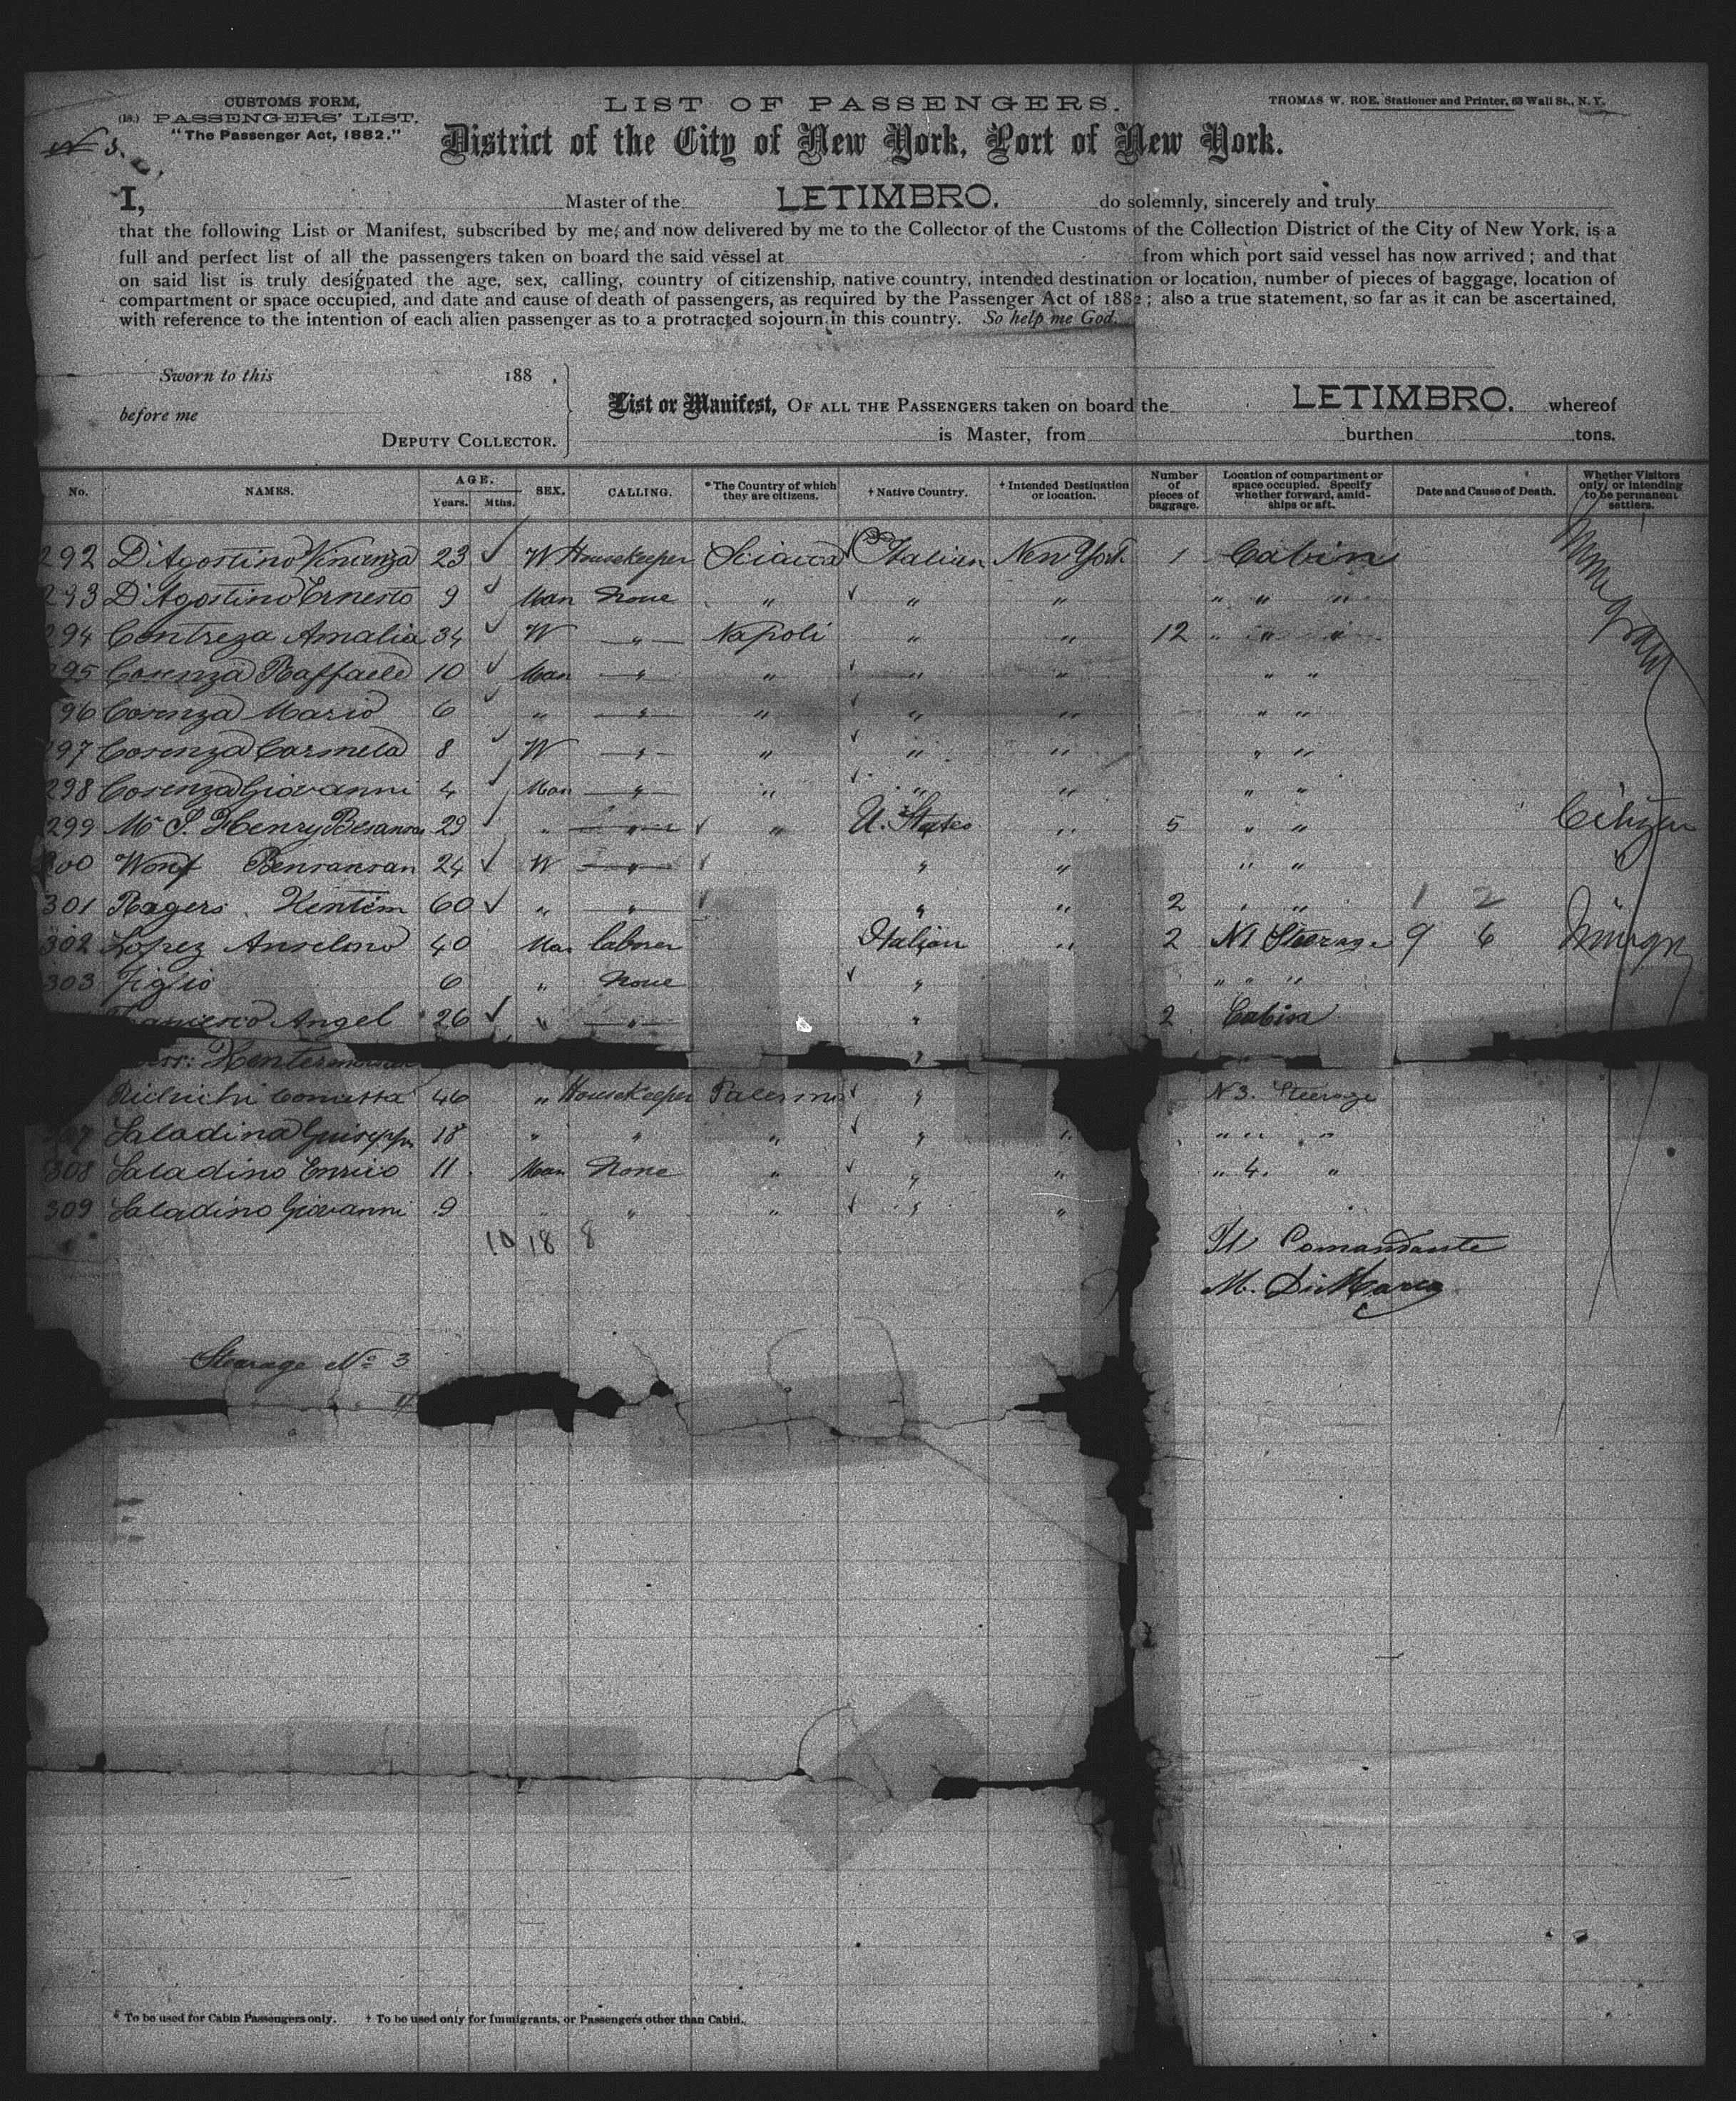 CUSTOMS FORM,
(18.) PASSENGERS' LIST.
"The Passenger Act, 1882."
LIST OF PASSENGERS.
THOMAS W. ROE, Stationer and Printer, 63 Wall St., N. Y.
District of the City of New York, Port of New York.
I, Master of the LETIMBRO. do solemnly, sincerely and truly
that the following List or Manifest, subscribed by me, and now delivered by me to the Collector of the Customs of the Collection District of the City of New York, is a
full and perfect list of all the passengers taken on board the said vessel at from which port said vessel has now arrived; and that
on said list is truly designated the age, sex, calling, country of citizenship, native country, intended destination or location, number of pieces of baggage, location of
compartment or space occupied, and date and cause of death of passengers, as required by the Passenger Act of 1882; also a true statement, so far as it can be ascertained,
with reference to the intention of each alien passenger as to a protracted sojourn in this country. So help me God.
Sworn to this 188 .
before me
DEPUTY COLLECTOR.
List or Manifest, OF ALL THE PASSENGERS taken on board the LETIMBRO. whereof
is Master, from burthen tons.
No. NAMES. AGE. Years. Mths. SEX. CALLING. * The Country of which they are citizens. † Native Country. † Intended Destination or location. Number of pieces of baggage. Location of compartment or space occupied. Specify whether forward, amidships or aft. Date and Cause of Death. Whether Visitors only, or intending to be permanent settlers.
292 D'Agostino Vincenza 23 ✓ W Housekeeper Sciacca ✓ Italian New York 1 Cabin
293 D'Agostino Ernesto 9 ✓ Man None " ✓ " " " " "
294 Contreza Amalia 34 ✓ W " Napoli " " 12 " " "
295 Cosenza Raffaele 10 ✓ Man " " ✓ " " " "
296 Cosenza Mario 6 ✓ " " " ✓ " " " "
297 Cosenza Carmela 8 ✓ W " " ✓ " " " "
298 Cosenza Giovanni 4 ✓ Man " " ✓ " " " "
299 Mr S. Henry 29 ✓ " " ✓ " U. States " 5 " " Citizen
300 Bensansan 24 ✓ W " ✓ " " " "
301 Ragers 60 ✓ " " ✓ " " 2 " " 1 2
302 Lopez Anselmo 40 Man labner Italian " 2 N1 Steerage 9 6
303 Figlio 6 " None ✓ " " " "
Angel 26 ✓ " " " 2 Cabin
46 " Housekeeper Palermo ✓ " N 3. Steerage
307 Saladina Guisepp 18 " " " ✓ " " " " "
308 Saladino Enrico 11 Man None " ✓ " " " 4. "
309 Saladino Giovanni 9 " " " ✓ " "
10 18 8
Il Comandante
M. DiMarco
Stearage No 3
4
* To be used for Cabin Passengers only. † To be used only for Immigrants, or Passengers other than Cabin.